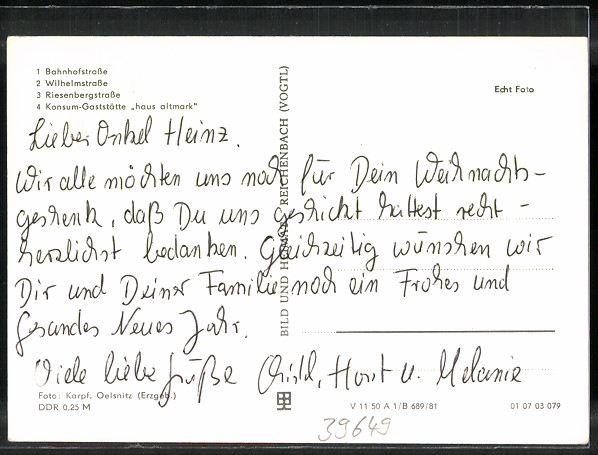 1 Bahnhofstraße
2 Wilhelmstraße
3 Riesenbergstraße
4 Konsum-Gaststätte „haus altmark"
Echt Foto
Lieber Onkel Heinz.
Wir alle möchten uns noch für Dein Weihnachts-
geschenk, daß Du uns geschickt hattest recht -
herzlichst bedanken. Gleichzeitig wünschen wir
Dir und Deiner Familie noch ein Frohes und
Gesundes Neues Jahr.
Viele liebe Grüße Christl, Horst u. Melanie
BILD UND HEIMAT REICHENBACH (VOGTL)
Foto: Karpf, Oelsnitz (Erzgeb.)
DDR 0,25 M
V 11 50 A 1/B 689/81
01 07 03 079
39649